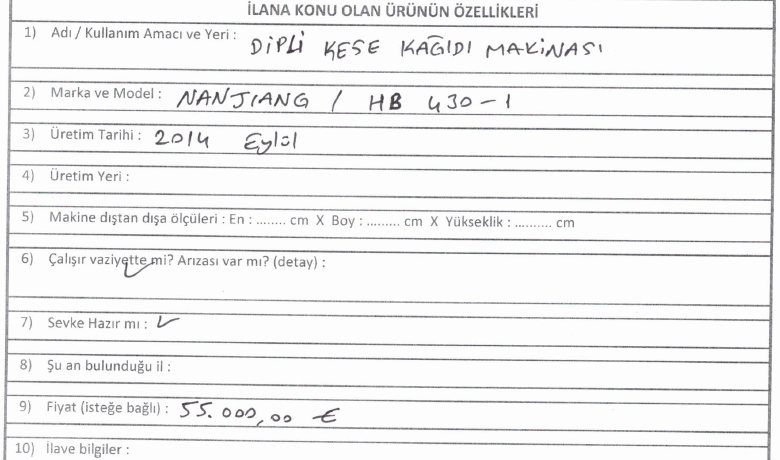 İLANA KONU OLAN ÜRÜNÜN ÖZELLİKLERİ
1) Adı / Kullanım Amacı ve Yeri : DİPLİ KESE KAĞIDI MAKİNASI
2) Marka ve Model : NANJIANG / HB 430-1
3) Üretim Tarihi : 2014 Eylül
4) Üretim Yeri :
5) Makine dıştan dışa ölçüleri : En : ........ cm X Boy : ......... cm X Yükseklik : .......... cm
6) Çalışır vaziyette mi? Arızası var mı? (detay) : ✓
7) Sevke Hazır mı : ✓
8) Şu an bulunduğu il :
9) Fiyat (isteğe bağlı) : 55.000,00 €
10) İlave bilgiler :